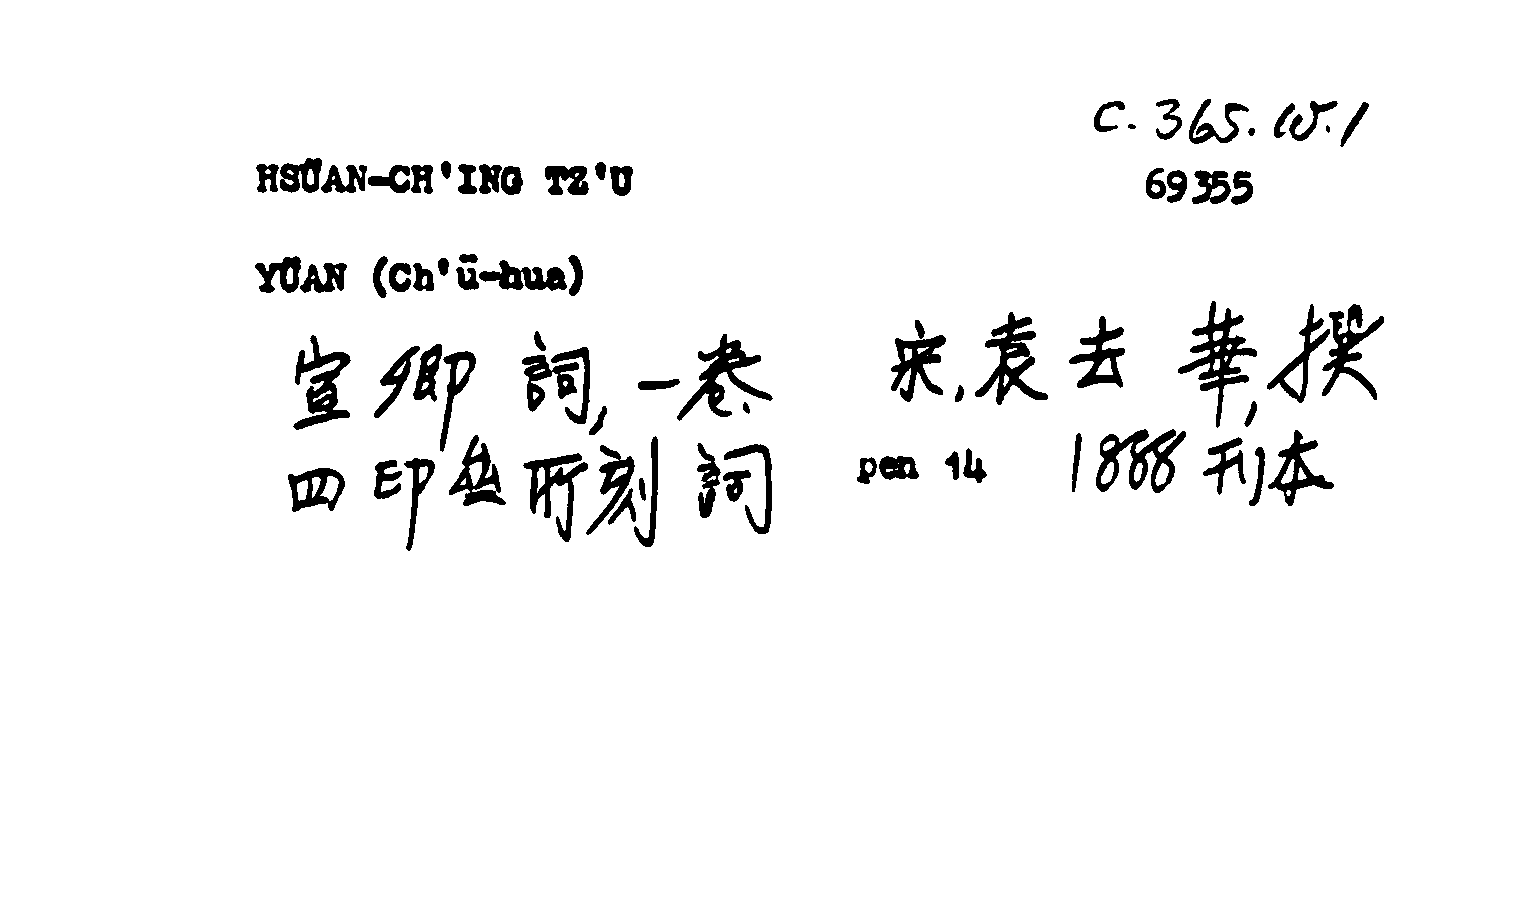 C. 365. w. 1
69355
HSÜAN-CH'ING TZ'U
YÜAN (Ch'ü-hua)
宣卿詞, 一卷. 宋, 袁去華, 撰
四印齋所刻詞 pen 14 1888刊本